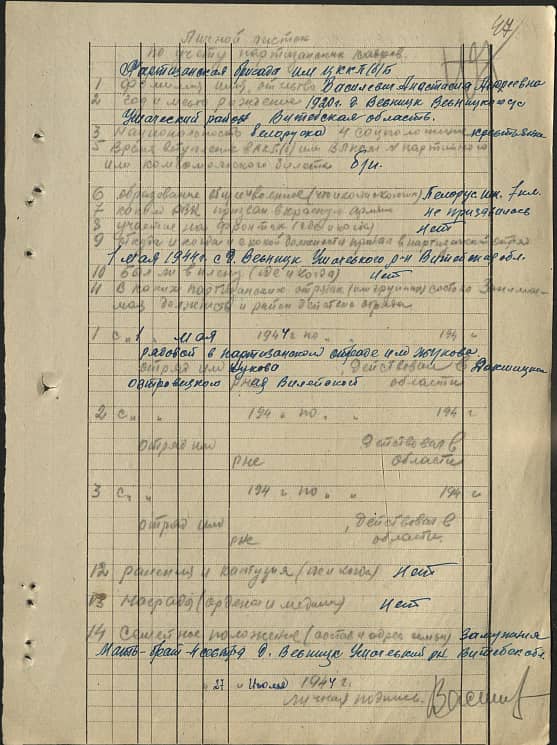 47
Личной листок
по учету партизанских кадров.
Партизанская бригада им ЦККП(б)Б
1 Фамилия имя, отчество Василевич Анастасия
2 Год и место рождения 1920г. д. Вевницк
Ушачский район Витебская область.
3 Национальность белоруска 4 соц положение крестьянка
5 Время вступления в ВКП(б) или ВЛКСМ № партийного
или комсомольского билета б/п.
6 образование (что и когда окончил) Белорус. шк. 7 кл.
7 каким РВК призван в красную армию не призывалась
8 участие на фронтах (где и когда) Нет
9 откуда и когда и с какой должности прибыл в партизанский отряд
1 мая 1944г. с д. Вевницк Ушачского, р-н Витебской обл.
10 Был ли в плену (где и когда) нет
11 В каких партизанских отрядах (или группах) состоял занима-
мая должность и район действия отряда
1 с „ 1 „ мая 1944 г по „ „ 194 „
рядовой в партизанском отряде им Жукова
отряд им Жукова, действовал в Докшицком
островецкого р-на Вилейской области
2 с „ „ 194 „ по „ „ 194 г
отряд им действовал в
р-не области
3 с „ „ 194 г по „ „ 194 г
отряд им , действовал в
р-не области.
12 ранения и контузия (где и когда) Нет
13 Награда (ордена и медали) Нет
14 Семейное положение (состав и адрес семьи) Замужняя
Мать-брат д. Вевницк Ушачский рн Витебск обл.
„ 27 „ Июля 1944 г.
личная подпись.